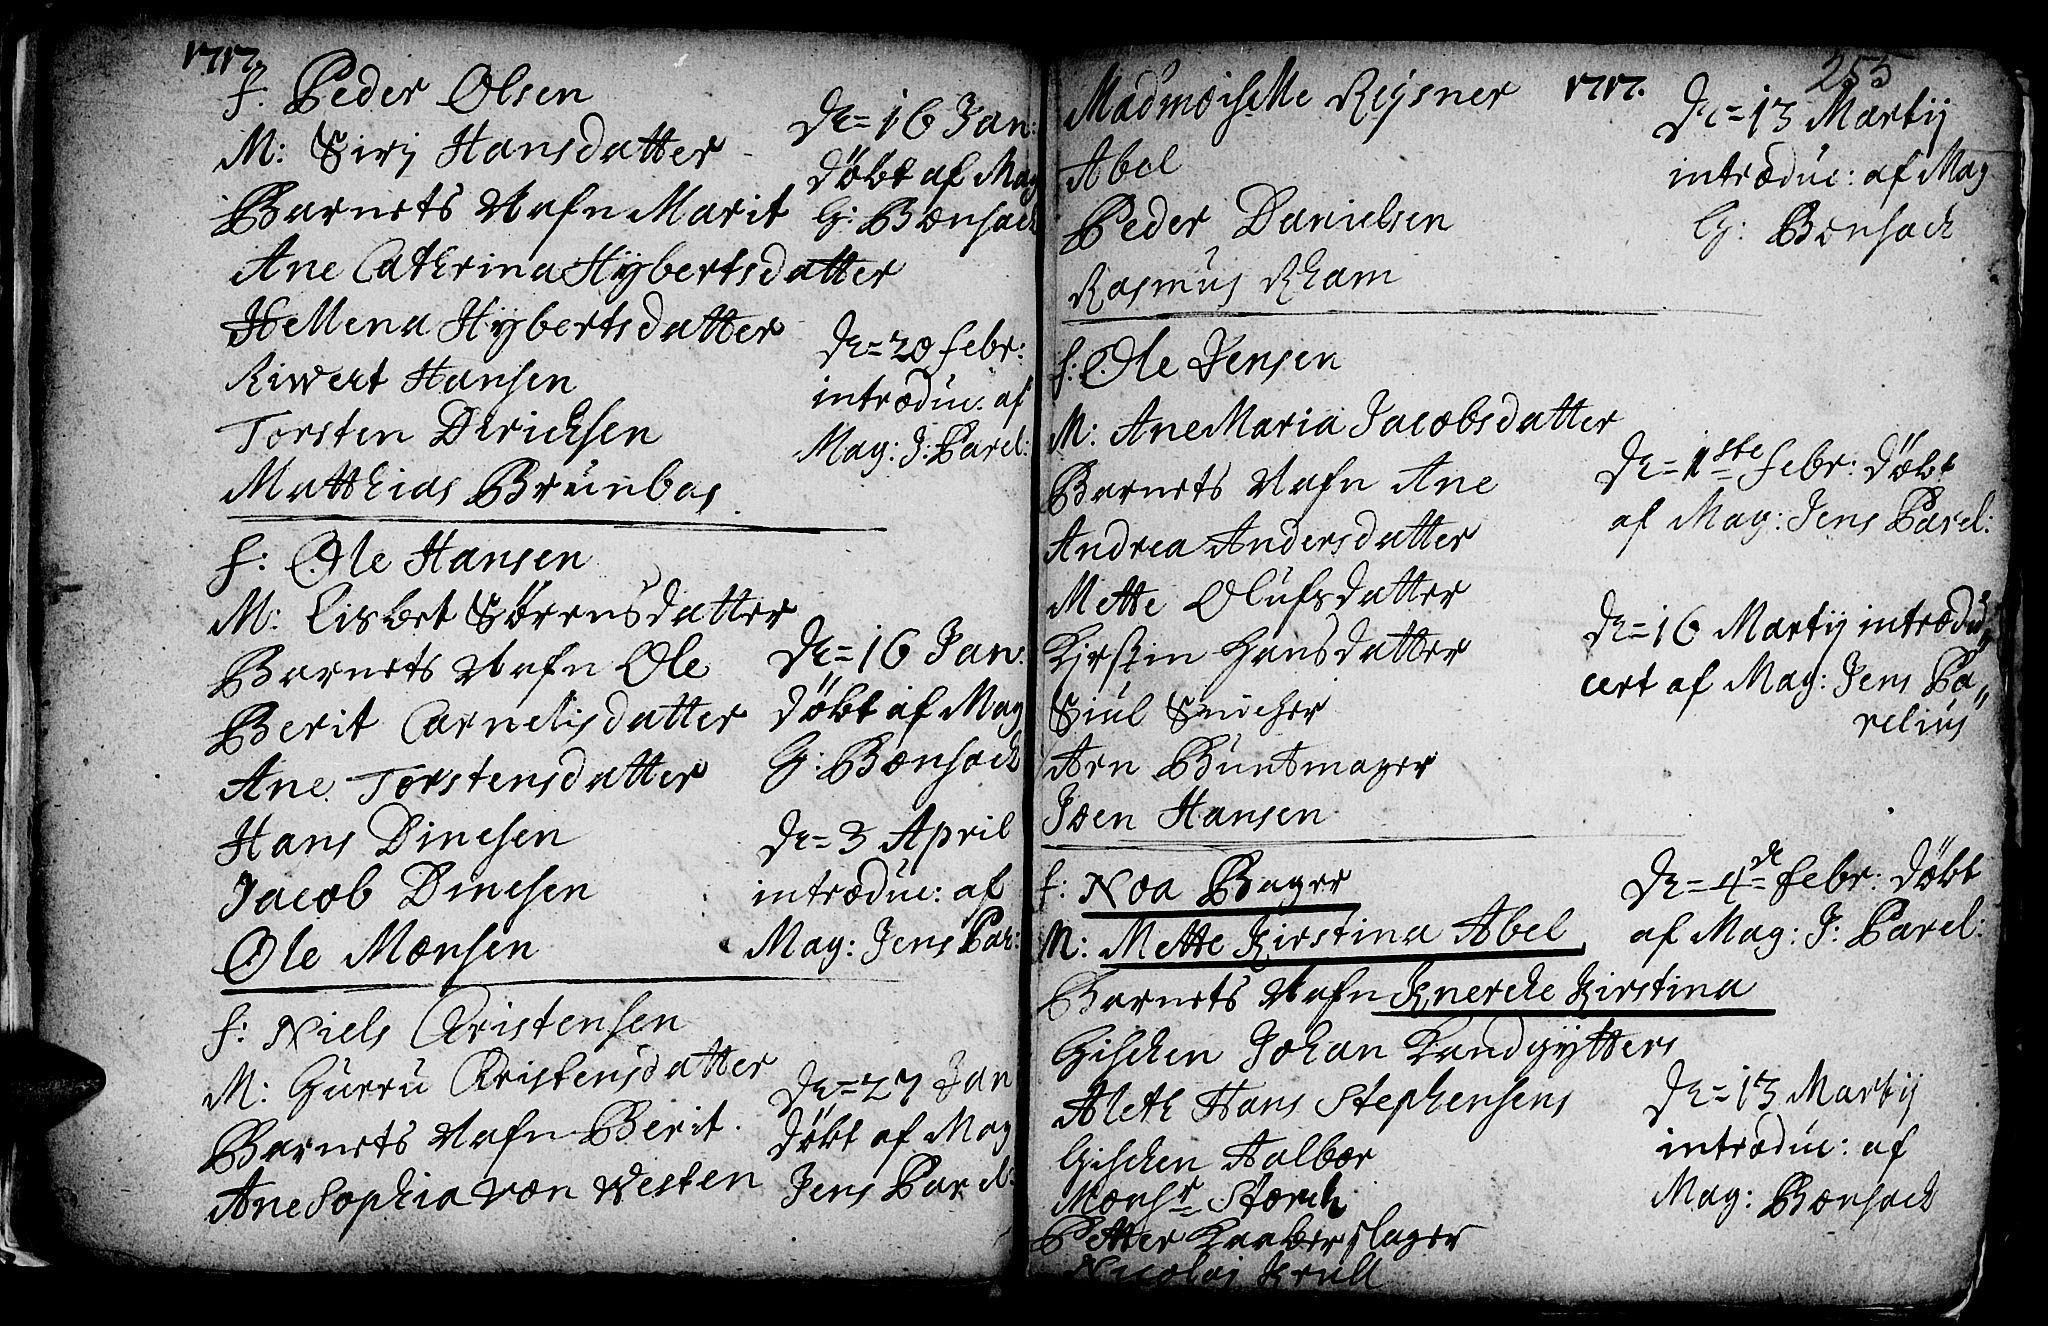 1717.
f. Peder Olsen
M: Sirj Hansdatter
Barnets Nafn Marit
Ane Cathrina Hybertsdatter
Hellena Hybertsdatter
Riwert Hansen
Torsten Dhricksen
Matthias Brünbas
De = 16 Jan:
döbt af Mag
G: Bonsack
De = 20 febr:
introduc: af
Mag: J: Parel:
f: Ole Hansen
M: Lisbet Sörensdatter
Barnets Nafn Ole
Berit Carnelisdatter
Ane Torstensdatter
Hans Dinesen
Jacob Dinesen
Ole Monsen
De = 16 Jan:
döbt af Mag
G: Bonsack
De = 3 April
introduc: af
Mag: Jens Par:
f: Niels Christensen
M: Gurru Christensdatter
Barnets Nafn Berit.
Ane Sophia von Westen
De = 27 Jan
döbt af Mag
Jens Parel:
255
1717.
Madmoiselle Reysner
Abel
Peder Danielsen
Rasmus Rham
De = 13 Martij
introduc: af Mag
G: Bonsack
f: Ole Jensen
M: Ane Maria Jacobsdatter
Barnets Nafn Ane
Andrea Andersdatter
Mette Olufsdatter
Kirstin Hansdatter
Siul
Arn Buntmager
Joen Hansen
De = 1ste febr: döbt
af Mag: Jens Parel:
De = 16 Martij introdu„
cert af Mag: Jens Pa„
relius
f: Noa Bager
M: Mette Kirstina Abel
Barnets Nafn Knercke Kirstina
Gischen Johan Landgytters
Aleth Hans Stephensens
Gischen Aalbor
Monsr Storch
Petter Kaaberslager
Nicolaj Krull
De = 4de febr: döbt
af Mag: J: Parel:
De = 13 Martij
introduc: af
Mag: Bonsack